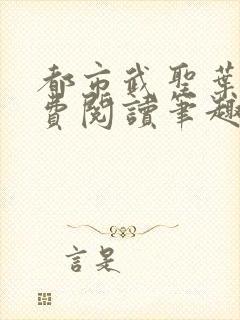 都市武聖葉
費閱讀筆趣
言是